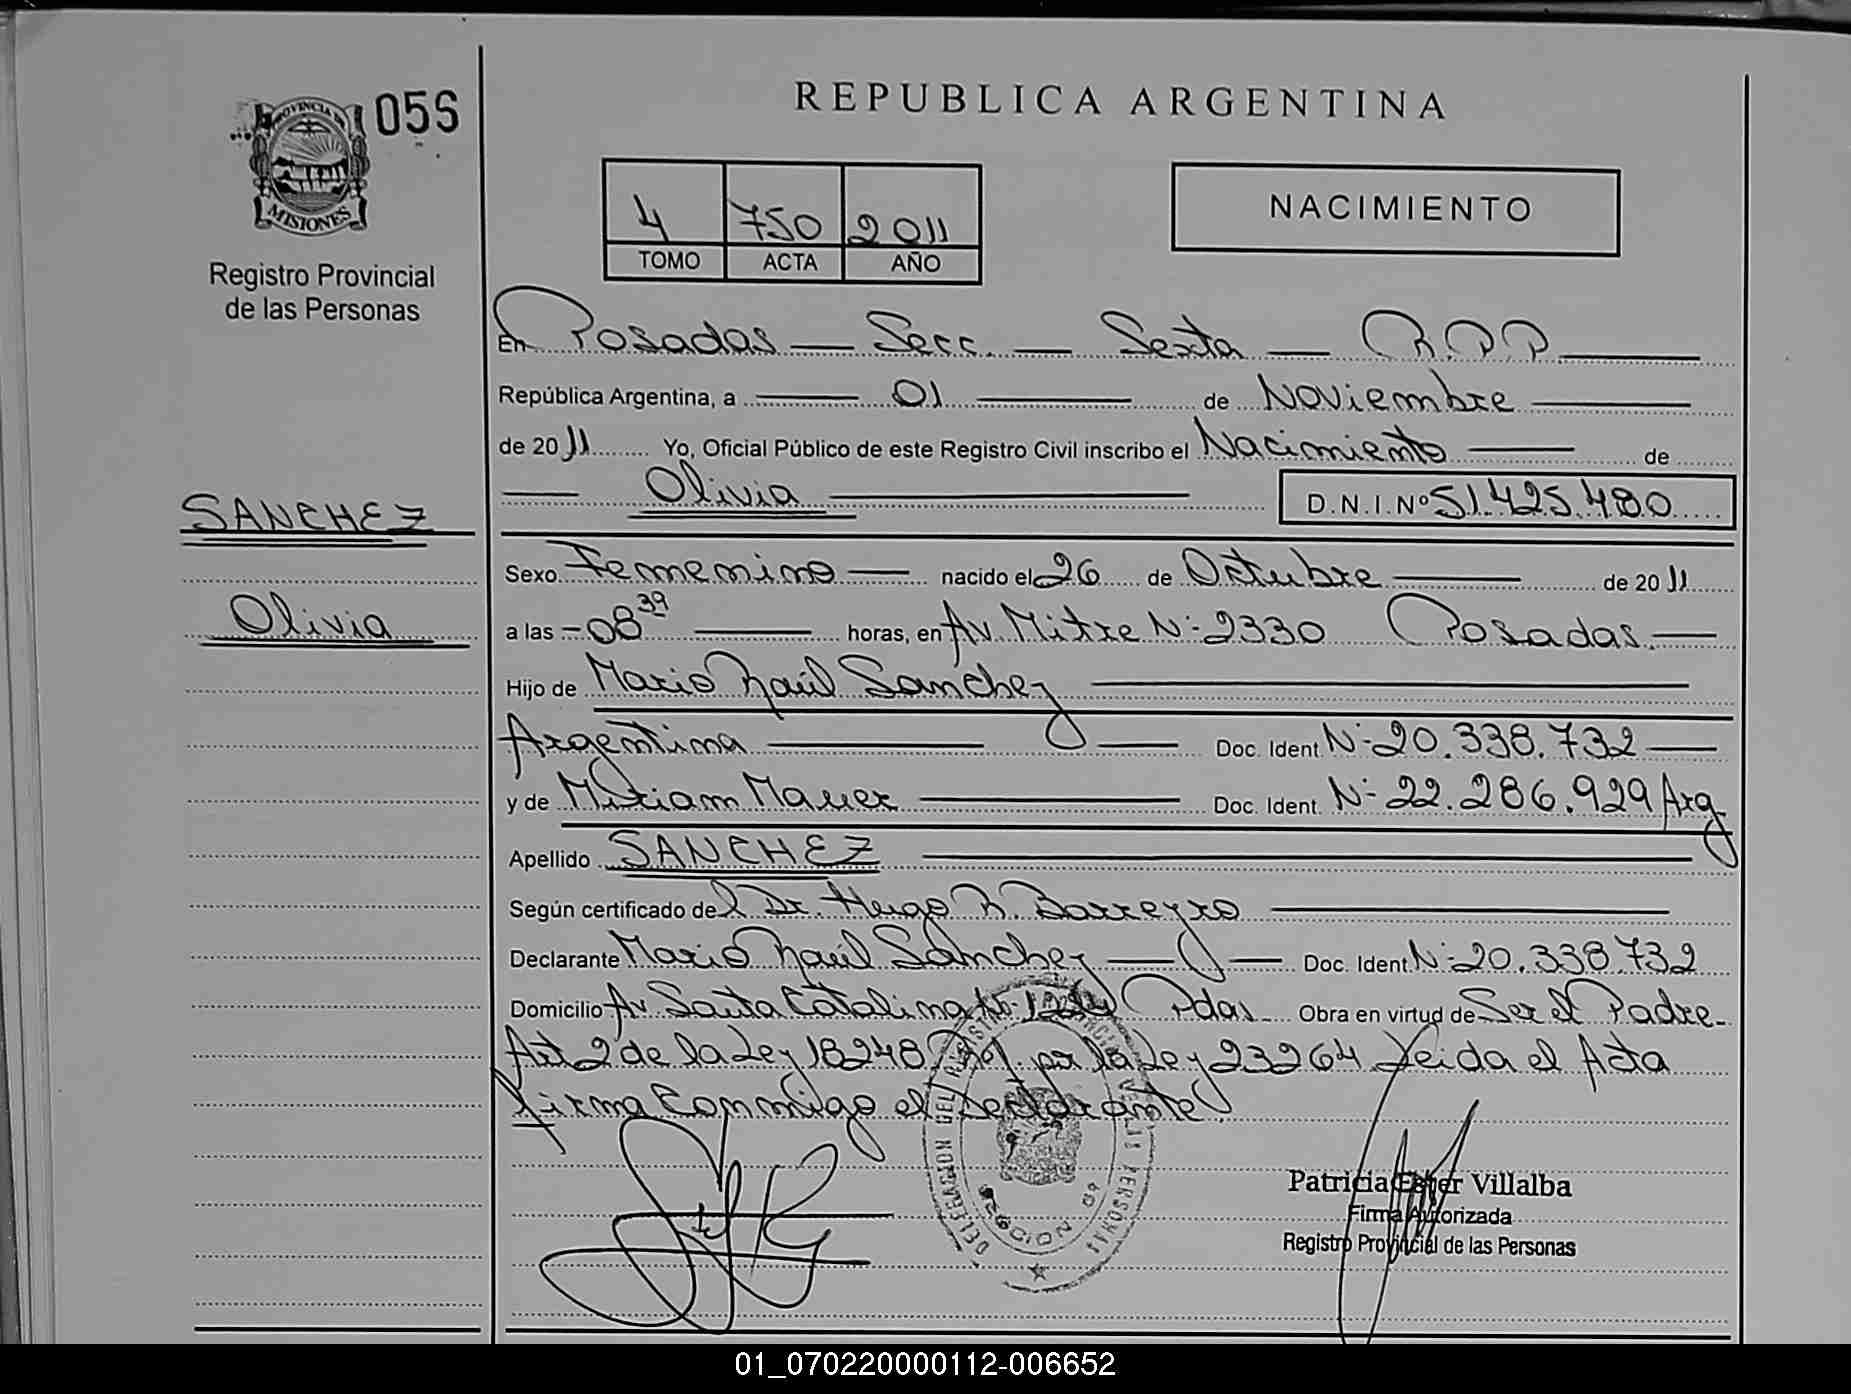 056
PROVINCIA DE
MISIONES
Registro Provincial
de las Personas
REPUBLICA ARGENTINA
4 750 2011
TOMO ACTA AÑO
NACIMIENTO
En Posadas — Secc. — Sexta — R.P.P.
República Argentina, a 01 de Noviembre
de 2011 Yo, Oficial Público de este Registro Civil inscribo el Nacimiento de
Olivia D.N.I.Nº 51.425.480
SANCHEZ
Olivia
Sexo Femenino nacido el 26 de Octubre de 2011
a las - 08 39 horas, en Av. Mitre Nº 2330 Posadas.
Hijo de Mario Raúl Sanchez
Argentina Doc. Ident. Nº 20.338.732
y de Miriam Mauer Doc. Ident. Nº 22.286.929 Arg
Apellido SANCHEZ
Según certificado del Dr. Hugo R. Barreyro
Declarante Mario Raúl Sánchez Doc. Ident. Nº 20.338.732
Domicilio Av. Santa Catalina Pdas. Obra en virtud de Ser el Padre-
Art 2 de la Ley 18248 por la Ley 23264 Leida el Acta
firma Conmigo el Declarante
DELEGACION DEL REGISTRO PROVINCIAL DE LAS PERSONAS
SECCION
Patricia Ester Villalba
Firma Autorizada
Registro Provincial de las Personas
01_070220000112-006652